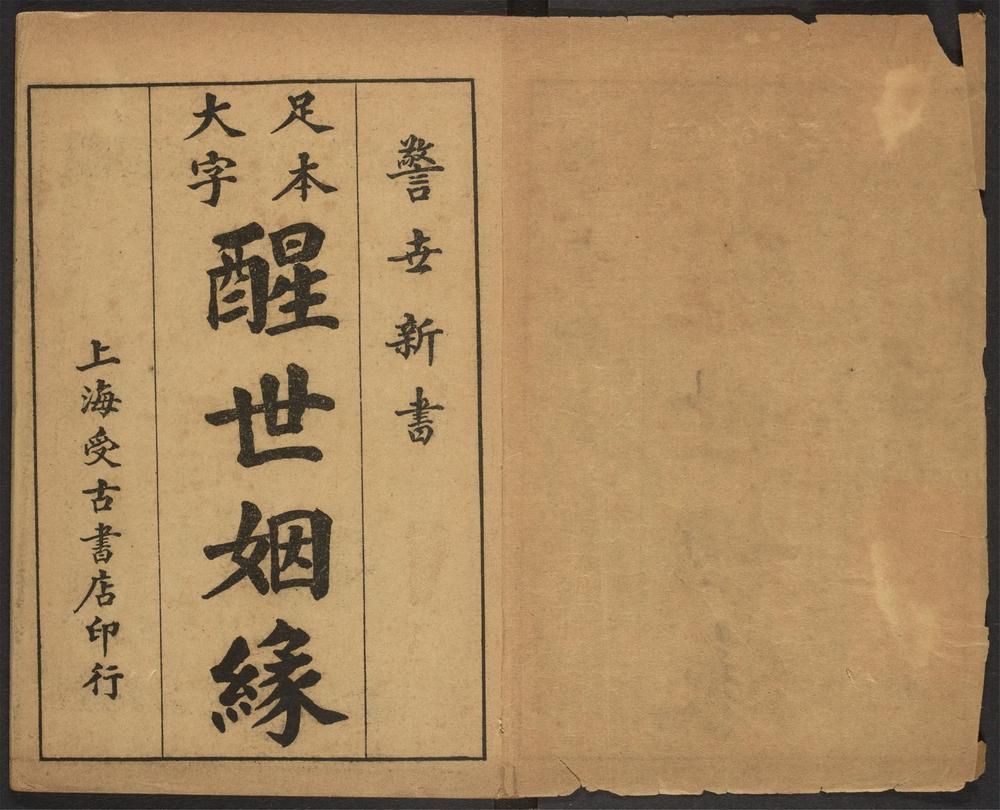 警世新書
足本
大字
醒世姻緣
上海受古書店印行